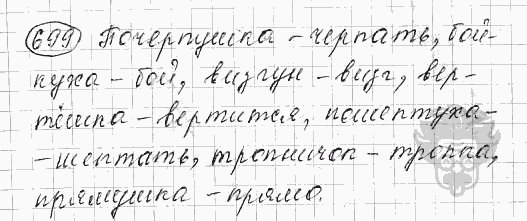 699 Почерпушка - черпать, бой-
куха - бой, визгун - визг, вер-
тёшка - вертится, пошептуха -
- шептать, тропничок - тропка,
прямушка - прямо.